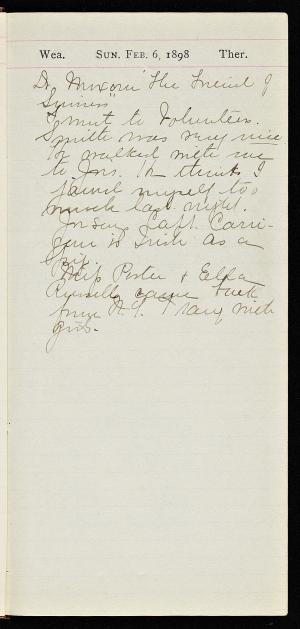 Wea. SUN. FEB. 6, 1898 Ther.
Dr "The Friend of
Sinners"
I went to Volunteer.
Smith was very nice
He walked with me
to Jns. He thinks I
myself too
much last night.
Jn says Capt. Carri-
gan is Irish as a
pig.
Miss Porter & Ella
Russell came back
from N.Y. I sang with
girls.